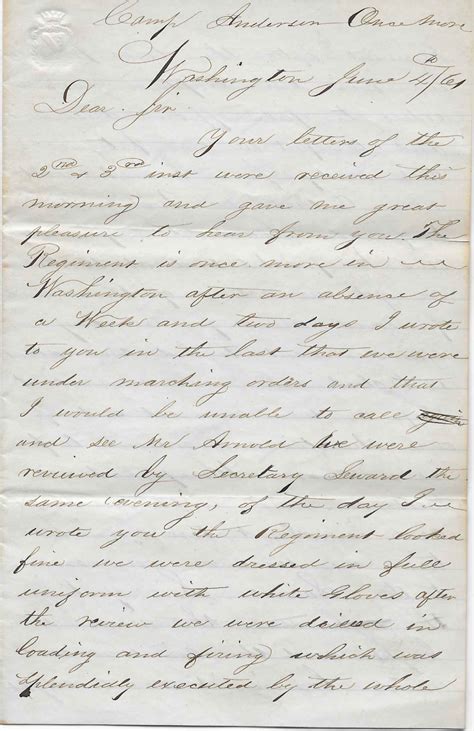 Camp Anderson Once more
Washington June 4th/61
Dear Sir
Your letters of the
2nd & 3rd inst were received this
morning and gave me great
pleasure to hear from you. The
Regiment is once more in
Washington after an absence of
a Week and two days I wrote
to you in the last that we were
under marching orders and that
I would be unable to call
and see Mr Arnold We were
reviewed by Secretary Seward the
same evening, of the day I
wrote you the Regiment looked
fine we were dressed in full
uniform with white Gloves after
the review we were in
loading and firing which was
splendidly executed by the whole